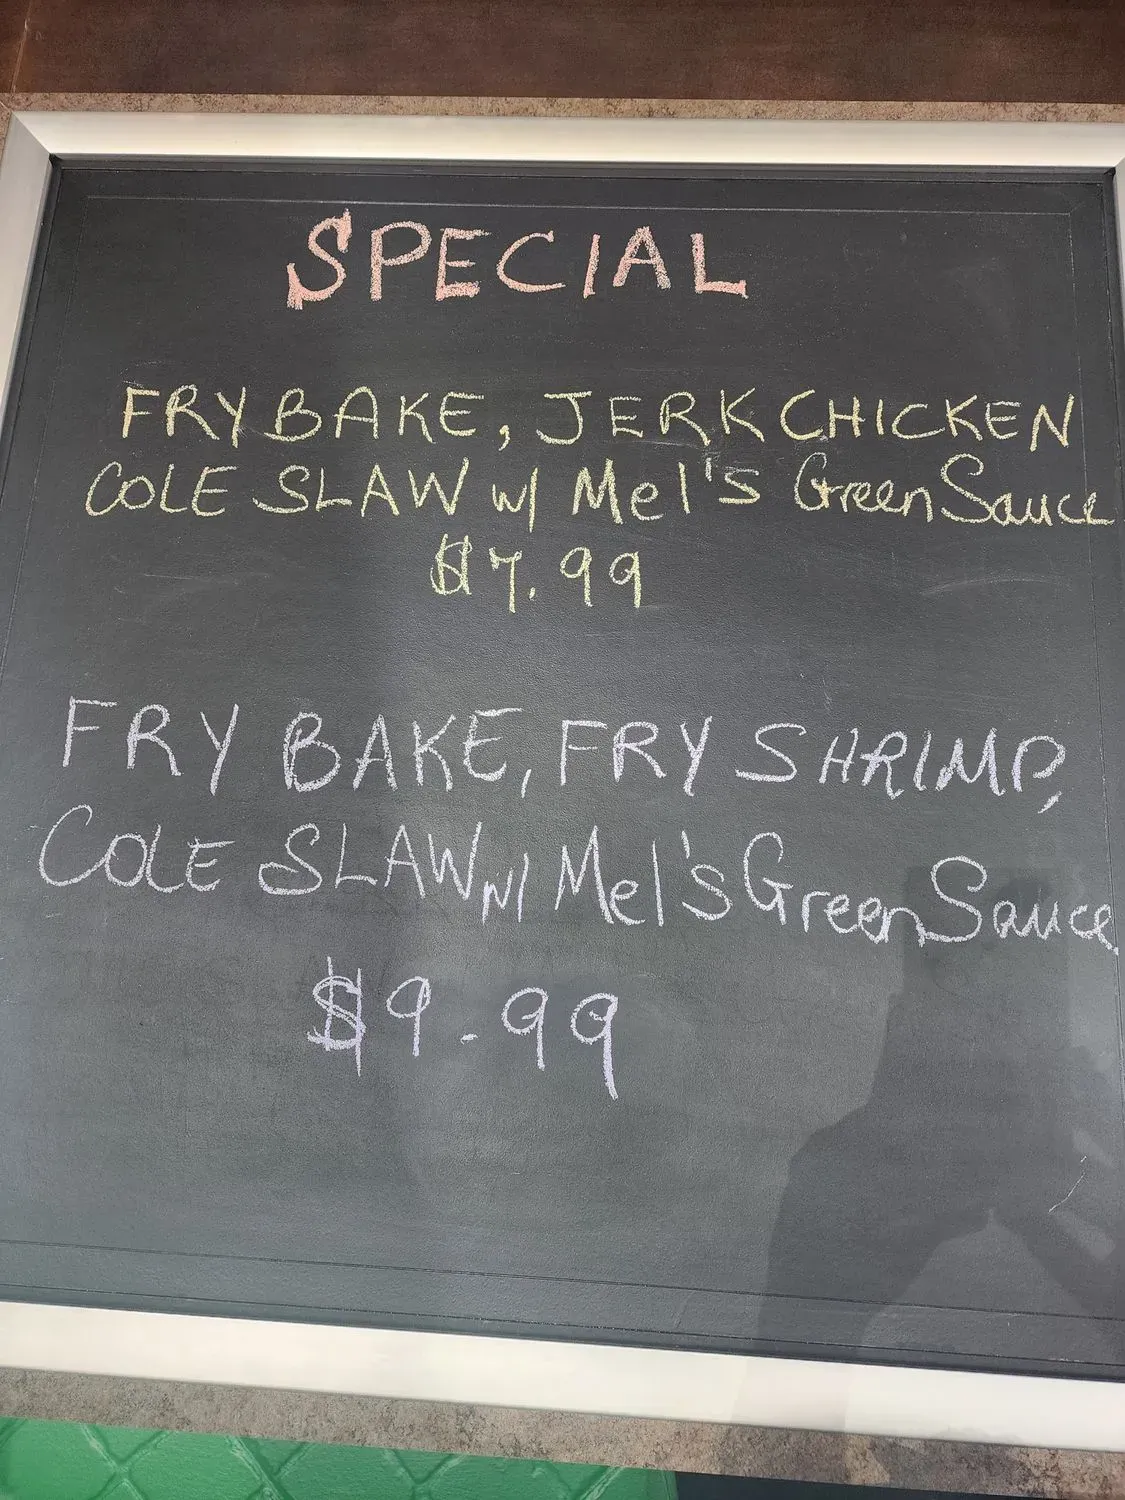 SPECIAL
FRY BAKE, JERK CHICKEN
COLE SLAW w/ Mel's Green Sauce
$7.99
FRY BAKE, FRY SHRIMP,
COLE SLAW w/ Mel's Green Sauce
$9.99